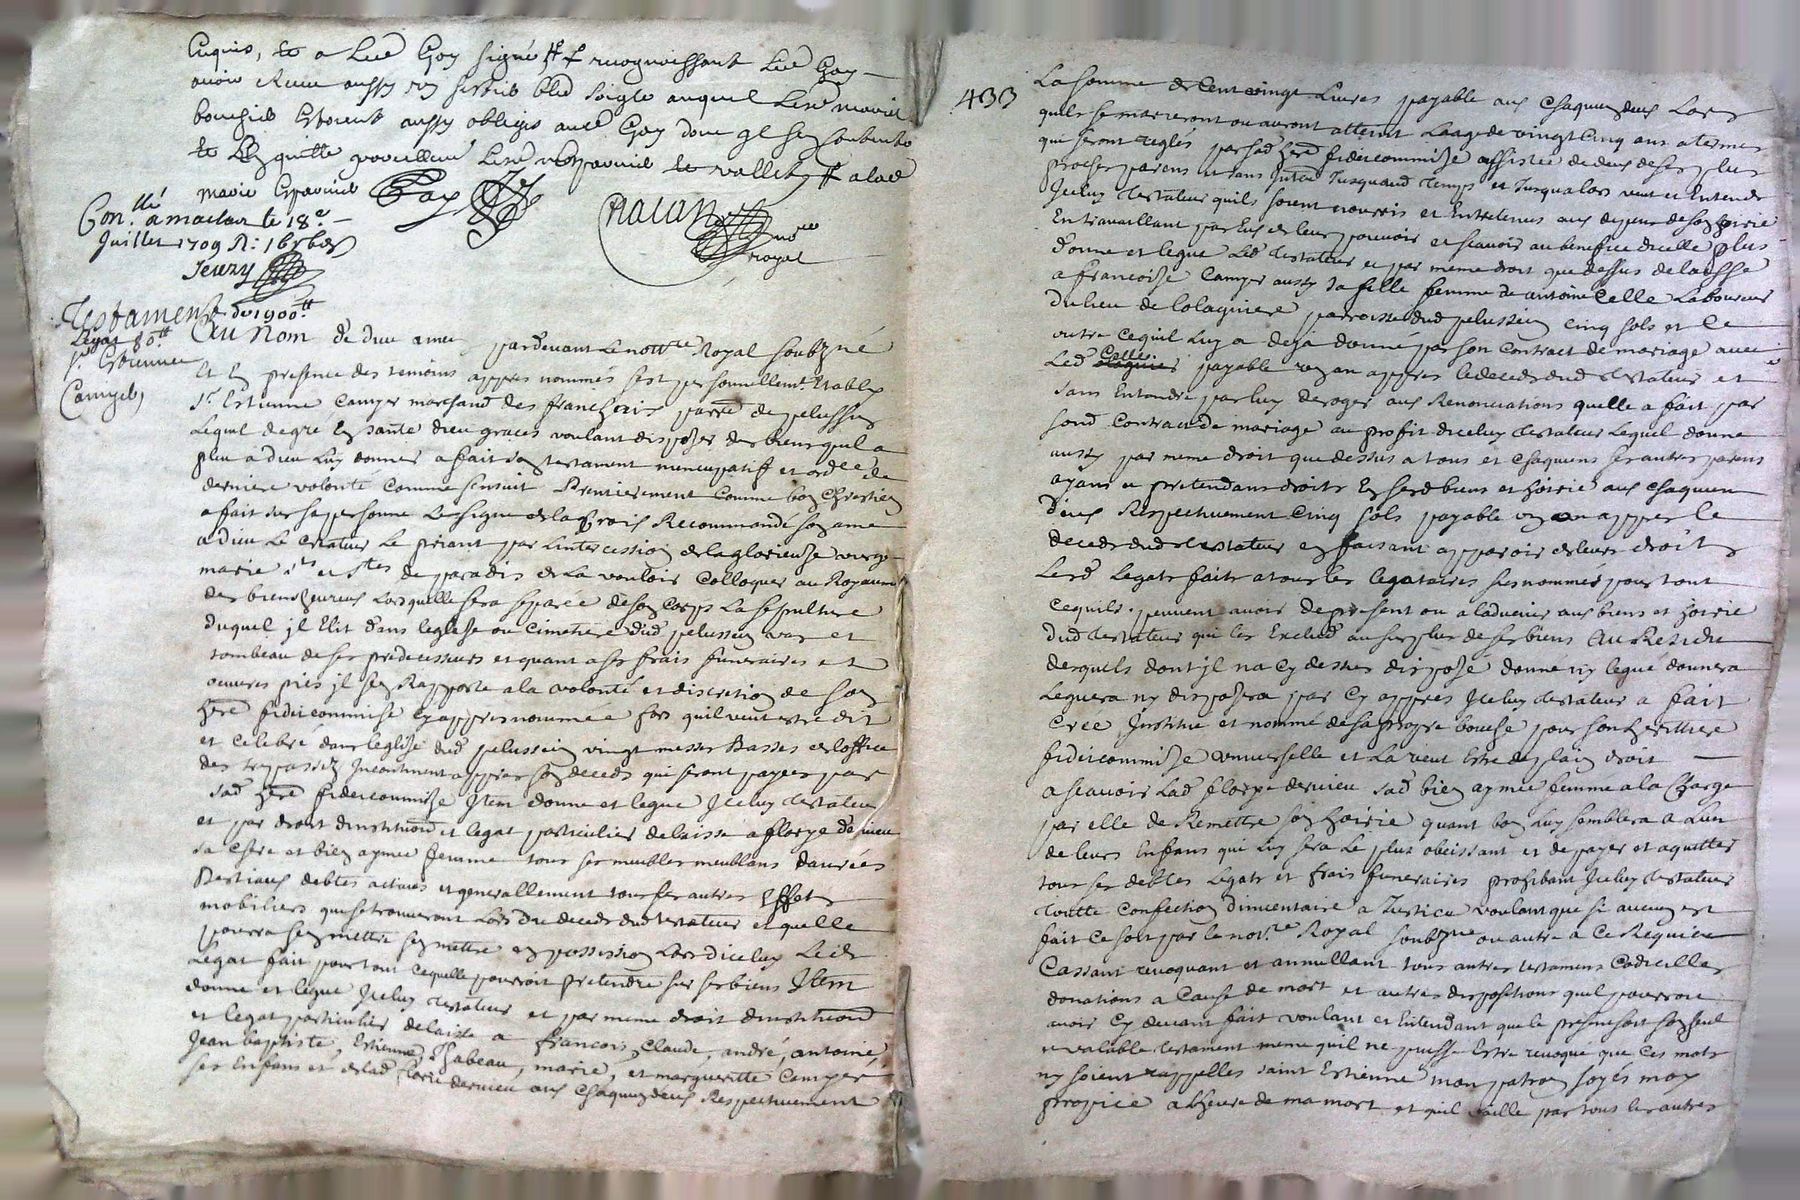 Enquis, et a Led Goy signé et recognoissant Led Goy
avoir Receu aussy un sestier bled soigle auquel Lesd mariés
estoient aussy obligés audt Goy dont jl se contente
et Les quitte
marie
Goy
Con.llé a maclas le 18e
Juillet 1709 R:
Jeury
royal
Testament de 1900tt
Legat 80tt
sr Estienne
Camyer
Au Nom de dieu amen pardevant Le nottre Royal soubzné
et En presence des temoins appres nommés sest personnellemt. Establi
sr. Estienne Camyer marchand des franchois parre de pelussin
Lequel de gré En santé dieu graces voulant disposer des biens quil a
pleu a dieu Luy donner a fait son testament noncupatif et ordce de
derniere volonté comme sensuit Premierement comme bon Chrestien
a fait sur sa personne Le signe de la Crois Recommandé son ame
a dieu Le Createur Le priant par Lintercession de la glorieuse vierge
marie sts et stes de paradis de La vouloir Colloquer au Royaume
des bienheureus Lors quelle sera separée de son Corps La sepulture
duquel jl Elit dans leglise ou Cimetiere dud pelussin vas et
tombeau de ses predecesseurs et quant a ses frais funeraires et
oeuvres pies jl sen Rapporte a la volonté et discretion de son
here fideicommise Cy appres nommée fors quil veut estre dit
et celebré dans leglise dud pelussin vingt messes Basses de loffice
des trepassés Incontinent appres son deceds qui seront payees par
sad here fideicommise Jtem donne et legue Jceluy testateur
et par droit dinstitution et legat particulier delaisse a florye dervieu
sa chere et bien aymee femme tous ses meubles meublans danrées
Bestiaus debtes actives et generallement tous ses autres Effets
mobiliers qui se trouveront Lors du deceds dud testateur et quelle
pourra sen mettre sen mettre en possession Lors diceluy Led
Legat fait pour tout ce quelle pourroit pretendre sur ses biens Jtem
donne et legue Jceluy testateur et par meme droit dinstitution
et legat particulier delaisse a francois, Claude, andré, antoine,
Jean baptiste, Estienne, Jsabeau, marie, et margueritte Camyer
ses Enfans et de lad florie dervieu aus Chaquun deus Respectivement
433
La somme de Cent vingt Livres payable aus Chaquun deus Lors
quils se marieront ou auront atteint Laage de vingt Cinq ans a termes
qui seront reglés par sad here fideicommise assistée de deus de ses plus
proches parens et sans Jnterest Jusquaud temps et Jusqualors veut et Entend
Jceluy testateur quils soient nourris et Entretenus aus depens de son hoirie
En travaillant par Eus de leur pouvoir et scavoir au benefice dicelle plus
donne et legue Led testateur et par meme droit que dessus delaisse
a francoise Camyer aussy sa fille femme de antoine Celle Laboureur
du lieu de Colaginere parroisse dud pelussin Cinq sols et Ce
outre Ce quil Luy a deja donne par son Contract de mariage avec
Led Celle payable un an appres le deceds dud testateur et
sans Entendre par luy deroger aus Renonciations quelle a fait par
sond Contract de mariage au profit diceluy testateur Lequel donne
aussy par meme droit que dessus a tous et Chaquuns ses autres parens
ayans et pretendans droits En sesd biens et hoirie aus Chaquun
deus Respectivement Cinq sols payable un an appres le
deceds dud testateur en faisant apparoir de leurs droits
Lesd Legats faits a tous les legataires susnommés pour tout
Ce quils peuvent avoir de present ou a ladvenir aus biens et hoirie
dud testateur qui les Exclud au surplus de ses biens Au Residu
desquels dont jl na Cy dessus disposé donné ny legué donnera
Leguera ny disposera par Cy appres Jceluy testateur a fait
Creé Jnstitué et nommé de sa propre bouche pour son heritiere
fideicommise universelle et La veut Estre de plain droit
a scavoir Lad florye dervieu sad bien aymee femme a la Charge
par elle de Remettre son hoirie quant bon Luy semblera a Lun
de leurs Enfans qui Luy sera Le plus obeissant et de payer et aquitter
tous ses debtes Legats et frais funeraires prohibant Jceluy testateur
toutte Confection dinventaire a Justice voulant que si aucun est
fait Ce soit par le notre Royal soubzne ou autre a Ce Requis
Cassant revoquant et annullant tous autres testamens Codicilles
donations a Cause de mort et autres dispositions quil pourroit
avoir Cy devant fait voulant et Entendant que le present soit son seul
et valable testament meme quil ne puisse Estre revoqué que Ces mots
ny soient rappelles saint Estienne mon patron soyés moy
propice a Lheure de ma mort et quil vaille par tous les autres